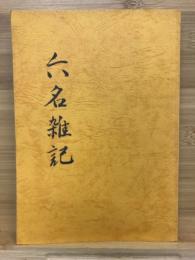 六名雑記